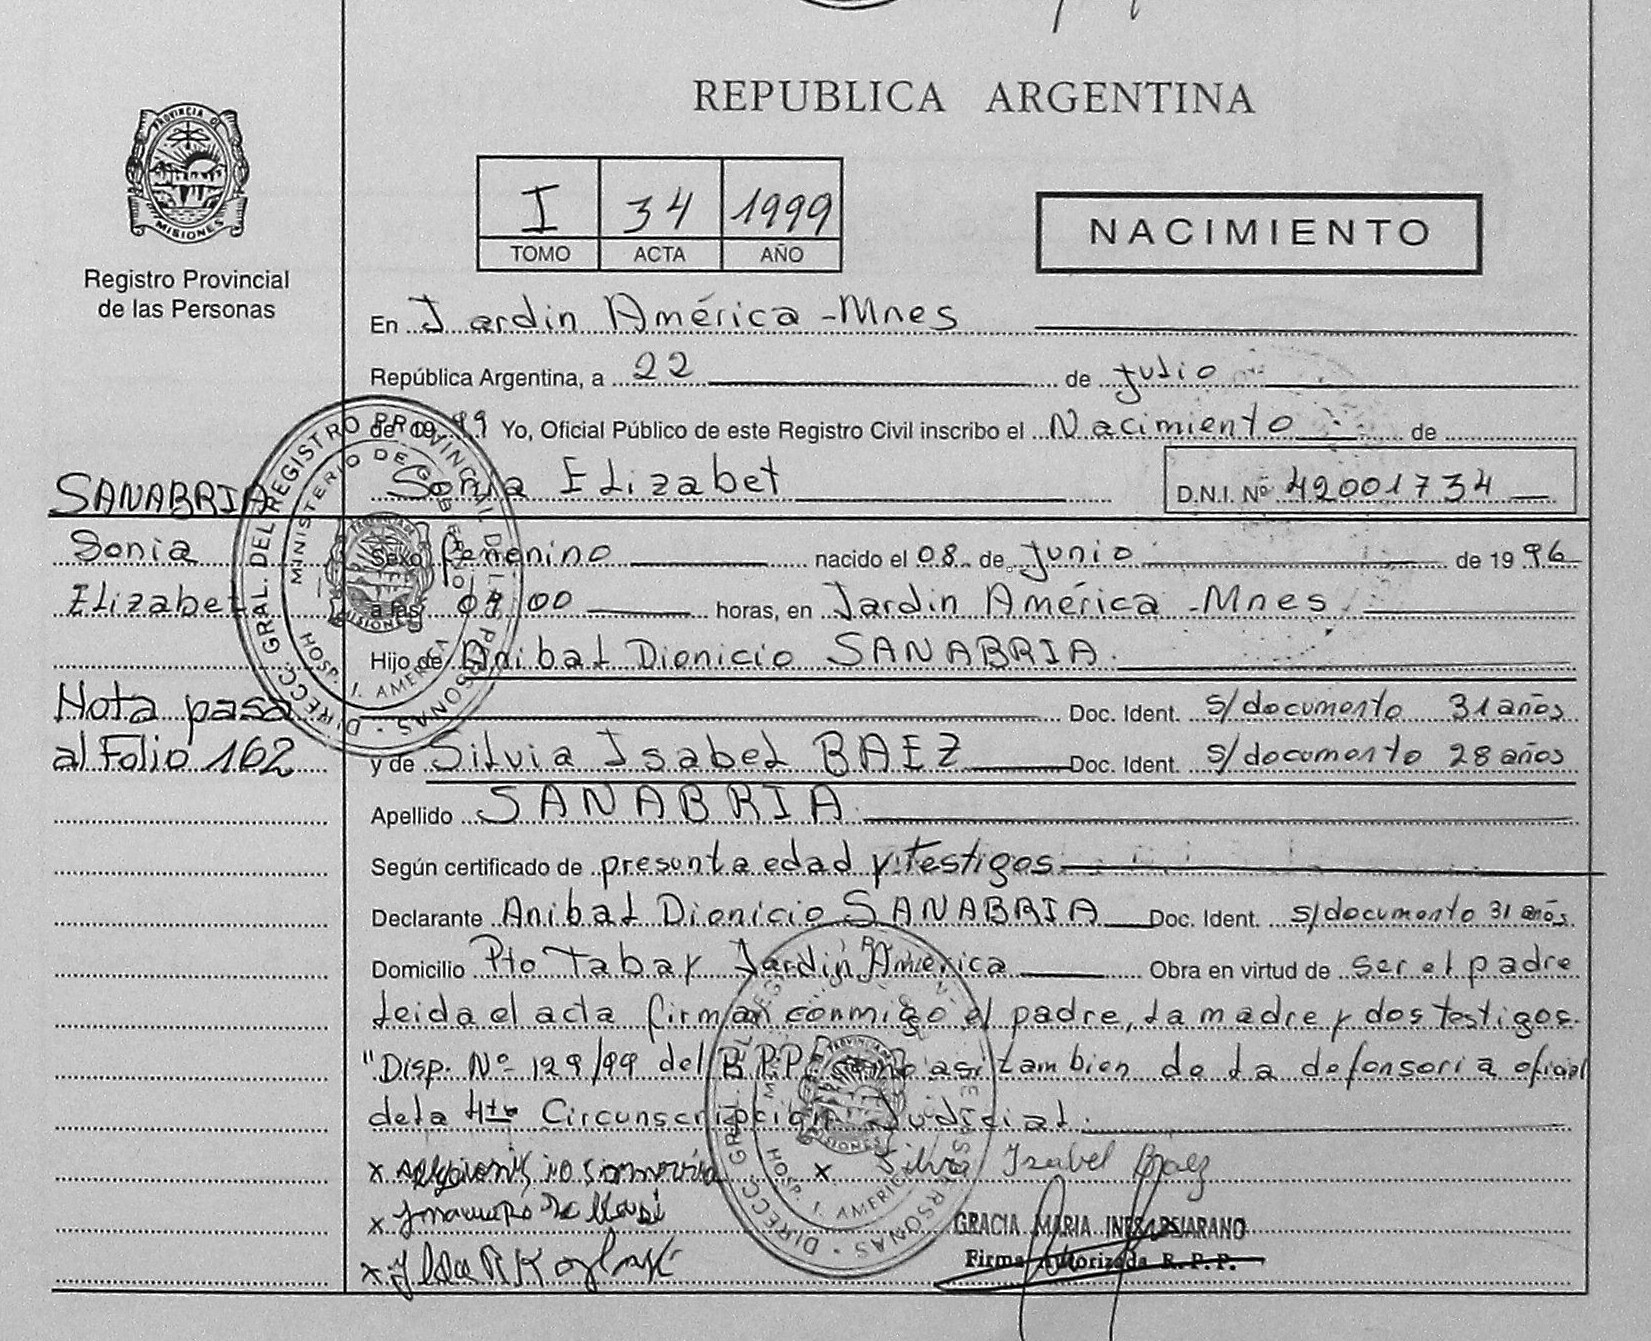 REPUBLICA ARGENTINA
PROVINCIA DE
MISIONES
Registro Provincial
de las Personas
I 34 1999
TOMO ACTA AÑO
NACIMIENTO
En Jardin América - Mnes
República Argentina, a 22 de Julio
de 1999 Yo, Oficial Público de este Registro Civil inscribo el Nacimiento de
SANABRIA
Sonia Elizabet D.N.I. Nº 42001734
Sonia
Sexo femenino nacido el 08 de Junio de 1996
Elizabet
a las 09.00 horas, en Jardin América - Mnes
Hijo de Anibal Dionicio SANABRIA
Nota pasa
Doc. Ident. s/documento 31 años
al Folio 162
y de Silvia Isabel BAEZ Doc. Ident. s/documento 28 años
Apellido SANABRIA
Según certificado de presunta edad y Testigos
Declarante Anibal Dionicio SANABRIA Doc. Ident. s/documento 31 años
Domicilio Pto Tabay Jardin América Obra en virtud de ser el padre
leida el acta firman conmigo el padre, la madre y dos testigos.
"Disp. Nº 129/99 del asi tambien de la defensoria oficial
dela 4ta Circunscripción Judicial.
x x Silvia Isabel Baez
x
x
GRACIA MARIA INES
Firma Autorizada R.P.P.
DIRECC. GRAL. DEL REGISTRO PROVINCIAL DE LAS PERSONAS
MINISTERIO DE GOBIERNO
HOSP. J. AMERICA
PROVINCIA DE
MISIONES
DIRECC. GRAL. PERSONAS
HOSP. J. AMERICA
PROVINCIA DE
MISIONES